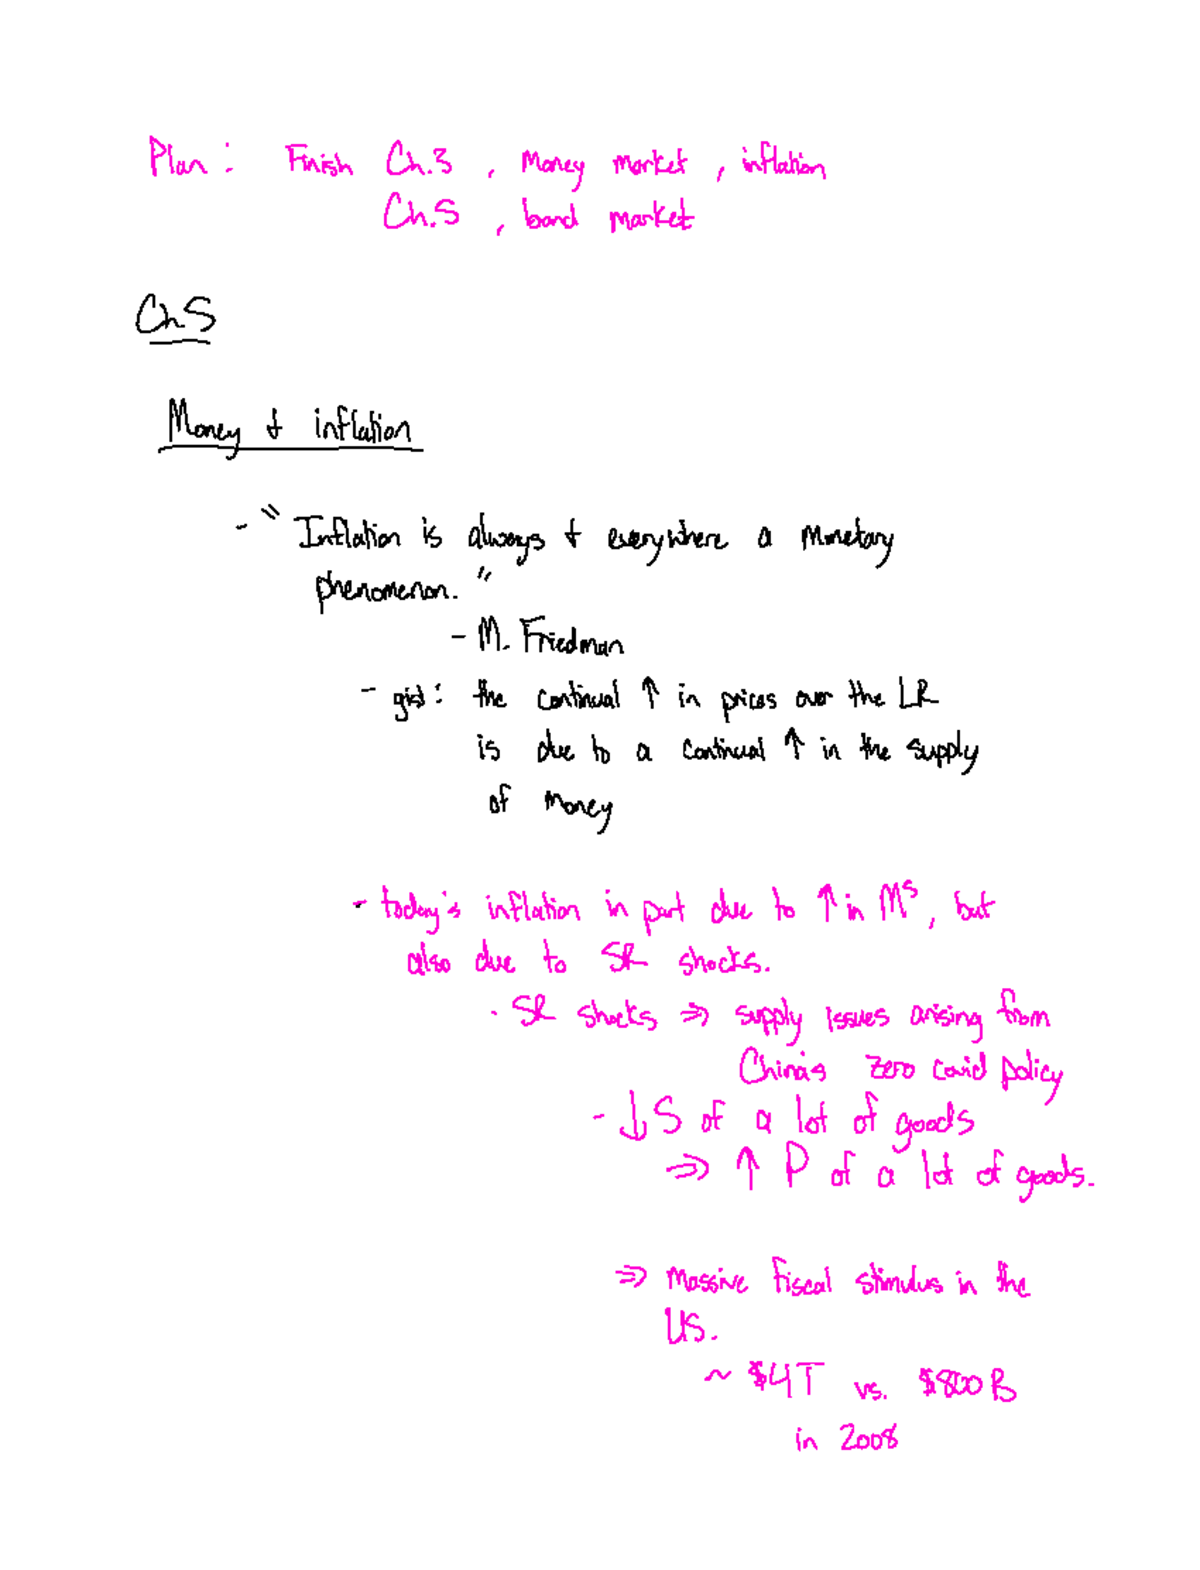 Plan: Finish Ch.3, Money market, inflation
Ch.5, bond market
Ch.5
Money & inflation
- "Inflation is always & everywhere a monetary
phenomenon."
- M. Friedman
- gist: the continual ↑ in prices over the LR
is due to a continual ↑ in the supply
of money
- today's inflation in part due to ↑ in Mˢ, but
also due to SR shocks.
· SR shocks ⇒ supply issues arising from
China's zero covid policy
- ↓ S of a lot of goods
⇒ ↑ P of a lot of goods.
⇒ massive fiscal stimulus in the
US.
~ $4T vs. $800B
in 2008